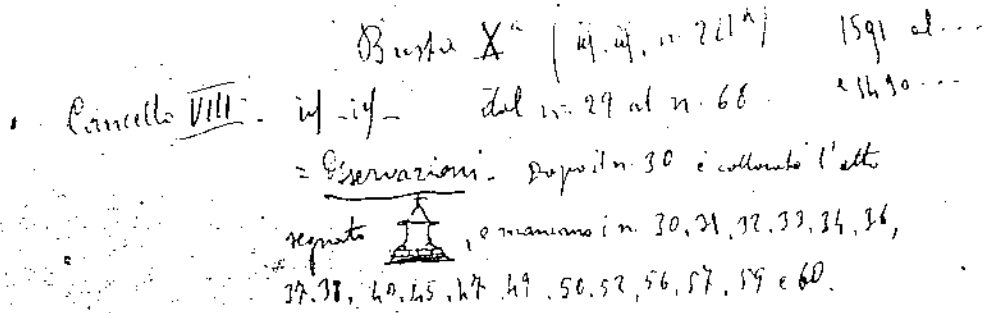 Busta Xª (ivi. ivi, n. 271ª) 1591 al...
Cancello VIII. ivi - ivi - dal n. 29 al n. 68. e 1490...
= Osservazioni. Dopo il n. 30 è collocato l'atto
segnato , e mancano i n. 30, 31, 32, 33, 34, 36,
37, 38, 40, 45, 47, 49, 50, 52, 56, 57, 59 e 60.